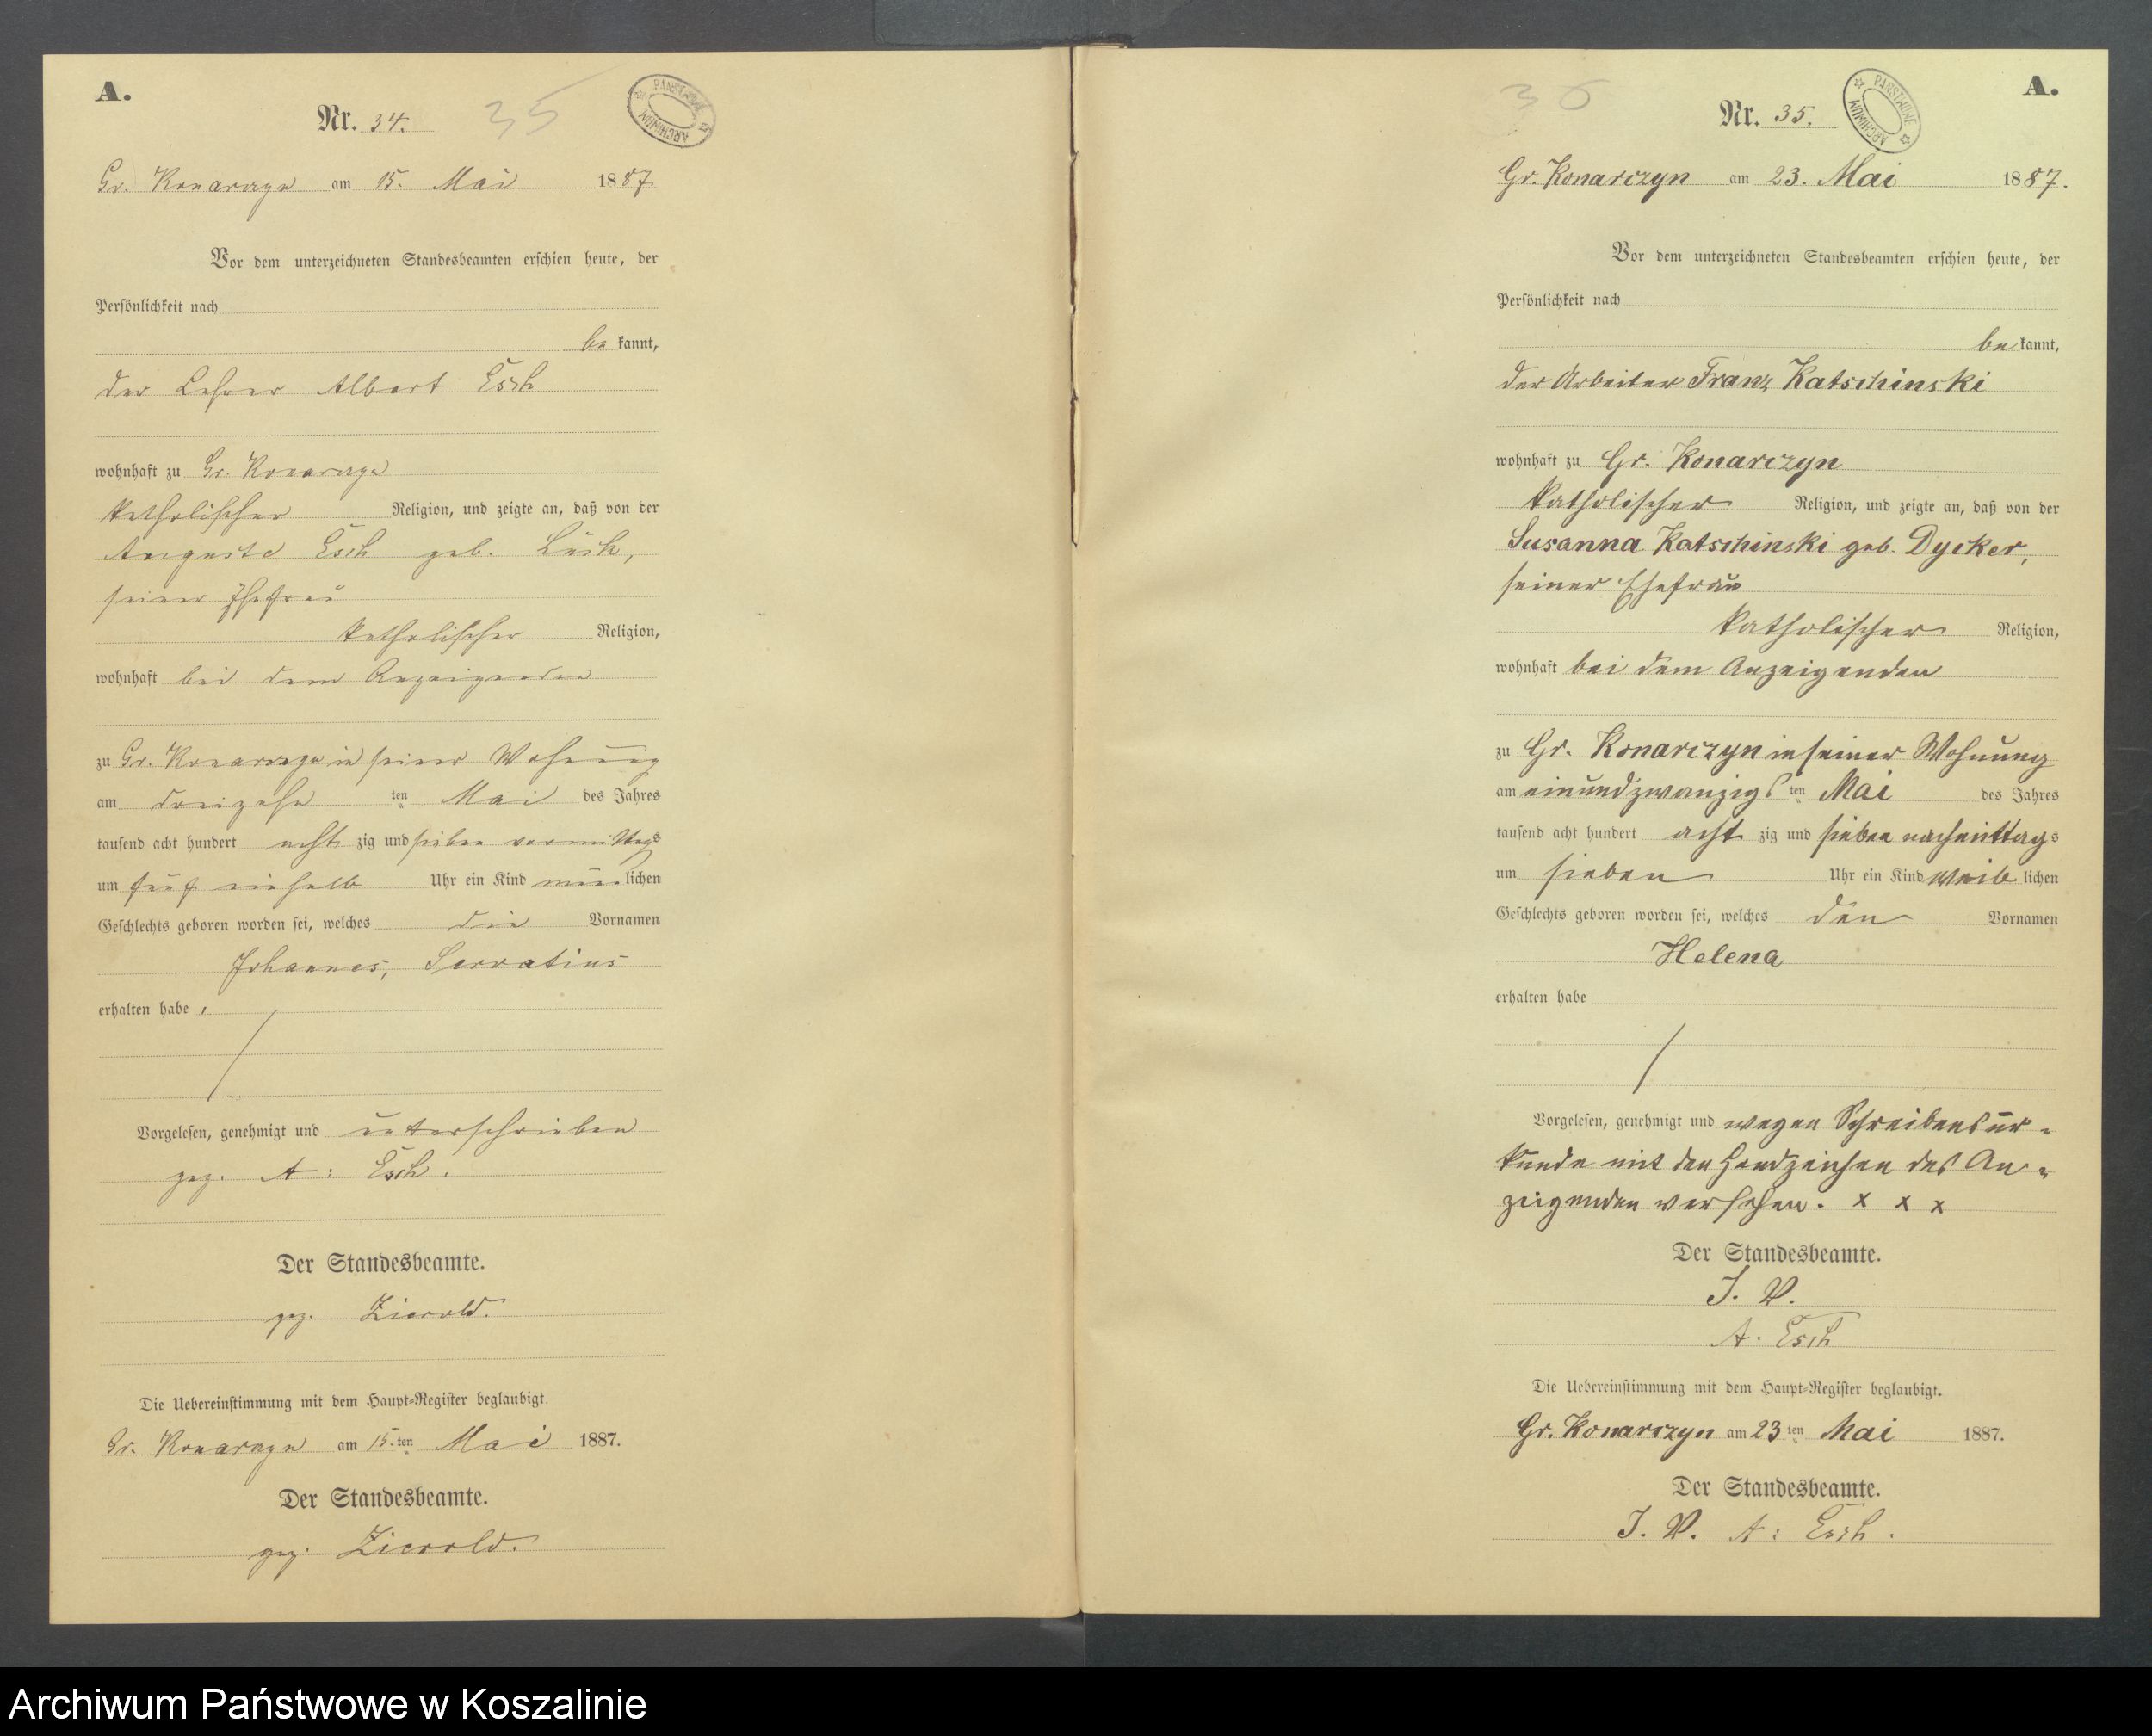 A.
Nr. 34.
35
PAŃSTWOWE ARCHIWUM
Gr. Konarczyn am 15. Mai 1887
Vor dem unterzeichneten Standesbeamten erschien heute, der
Persönlichkeit nach
be kannt,
der Lehrer Albert Esch
wohnhaft zu Gr. Konarczyn
katholischer Religion, und zeigte an, daß von der
Auguste Esch geb. Lück,
seiner Ehefrau
katholischer Religion,
wohnhaft bei dem Anzeigenden
zu Gr. Konarczyn in seiner Wohnung
am dreizehn ten Mai des Jahres
tausend acht hundert acht zig und sieben vormittags
um fünf einhalb Uhr ein Kind männlichen
Geschlechts geboren worden sei, welches die Vornamen
Johannes, Servatius
erhalten habe,
Vorgelesen, genehmigt und unterschrieben
gez. A: Esch.
Der Standesbeamte.
gez. Zierold.
Die Uebereinstimmung mit dem Haupt-Register beglaubigt.
Gr. Konarczyn am 15. ten Mai 1887.
Der Standesbeamte.
gez. Zierold.
A.
Nr. 35.
36
PAŃSTWOWE ARCHIWUM
Gr. Konarczyn am 23. Mai 1887.
Vor dem unterzeichneten Standesbeamten erschien heute, der
Persönlichkeit nach
be kannt,
der Arbeiter Franz Katschinski
wohnhaft zu Gr. Konarczyn
katholischer Religion, und zeigte an, daß von der
Susanna Katschinski geb. Dycker,
seiner Ehefrau
katholischer Religion,
wohnhaft bei dem Anzeigenden
zu Gr. Konarczyn in seiner Wohnung
am einundzwanzigs ten Mai des Jahres
tausend acht hundert acht zig und sieben nachmittags
um sieben Uhr ein Kind weib lichen
Geschlechts geboren worden sei, welches den Vornamen
Helena
erhalten habe
Vorgelesen, genehmigt und wegen Schreibensun-
kunde mit den Handzeichen des An-
zeigenden versehen. x x x
Der Standesbeamte.
I. V.
A. Esch
Die Uebereinstimmung mit dem Haupt-Register beglaubigt.
Gr. Konarczyn am 23 ten Mai 1887.
Der Standesbeamte.
I. V. A: Esch.
Archiwum Państwowe w Koszalinie